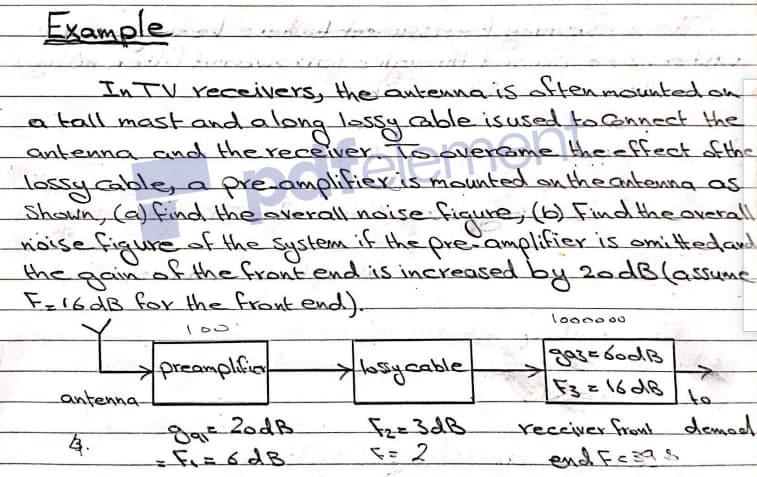 Example
In TV receivers, the antenna is often mounted on
a tall mast and a long lossy cable is used to Connect the
antenna and the receiver. To overcome the effect of the
lossy cable, a pre-amplifier is mounted on the antenna as
Shown, (a) find the overall noise figure, (b) Find the overall
noise figure of the system if the pre-amplifier is omitted and
the gain of the front end is increased by 20dB (assume
F=16dB for the front end).
100
1000000
preamplifier
lossy cable
ga3=60dB
F3=16dB
antenna
to
demod
ga1=20dB
F2=3dB
receiver front
=F1=6dB
F=2
end F=39.8
pdfelement